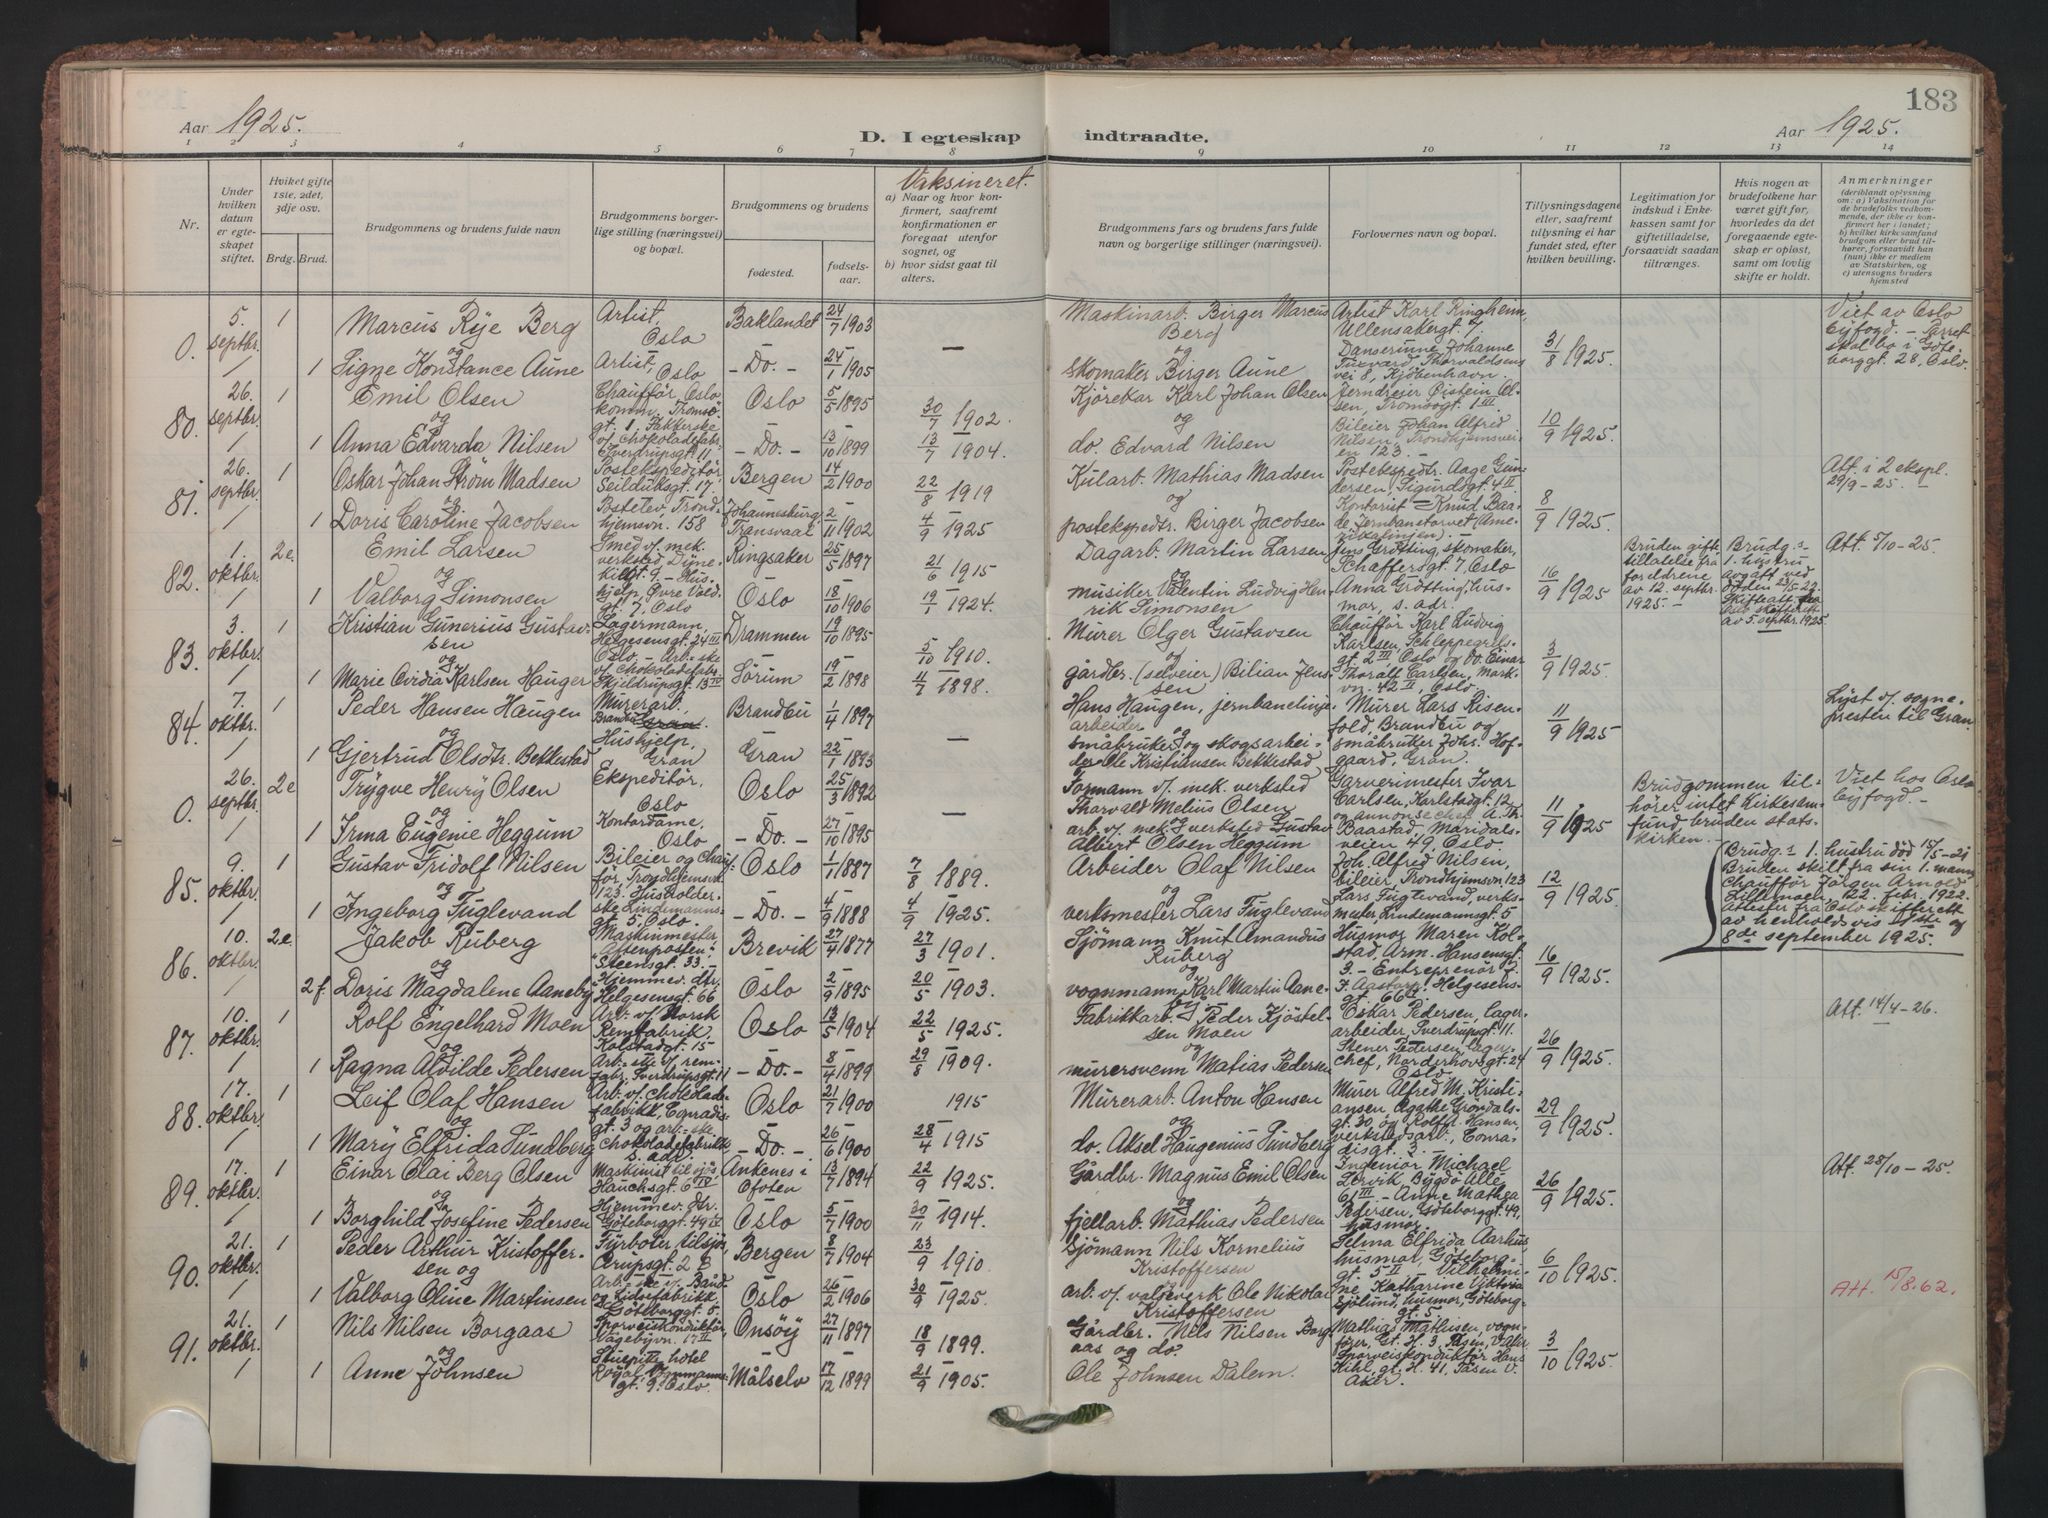 183
Aar 1925.
D. I egteskap indtraadte.
Aar 1925.
1 2 3 4 5 6 7 8 9 10 11 12 13 14
Nr.
Under hvilken datum er egteskapet stiftet.
Hvilket gifte 1ste, 2det, 3dje osv.
Brdg. Brud.
Brudgommens og brudens fulde navn
Brudgommens borgerlige stilling (næringsvei) og bopæl.
Brudgommens og brudens
fødested.
fødselsaar.
Vaksineret.
a) Naar og hvor konfirmert, saafremt konfirmationen er foregaat utenfor sognet, og
b) hvor sidst gaat til alters.
Brudgommens fars og brudens fars fulde navn og borgerlige stillinger (næringsvei).
Forlovernes navn og bopæl.
Tillysningsdagene eller, saafremt tillysning ei har fundet sted, efter hvilken bevilling.
Legitimation for indskud i Enkekassen samt for giftetilladelse, forsaavidt saadan tiltrænges.
Hvis nogen av brudefolkene har været gift før, hvorledes da det foregaaende egteskap er opløst, samt om lovlig skifte er holdt.
Anmerkninger
(deriblandt oplysning om: a) Vaksination for de brudefolks vedkommende, der ikke er konfirmert her i landet; b) hvilket kirkesamfund brudgom eller brud tilhører, forsaavidt han (hun) ikke er medlem av Statskirken, og c) utensogns bruders hjemsted
0. 5. septbr. 1 Marcus Rye Berg Artist, Oslo Baklandet 24/7 1903 — Maskinarb. Birger Marcus Berg Artist Karl Ringheim, Ullensakergt. 7. 31/8 1925 Viet av Oslo byfogd. – Parret skal bo i Göteborggt. 28, Oslo.
og
1 Signe Konstance Aune Artist, Oslo – Do. – 24/1 1905 skomaker Birger Aune Danserinne Johanne Thorvaldsens vei 8, Kjöbenhavn.
80. 26. septbr. 1 Emil Olsen Chaufför, Oslo komm. Tromsögt. 1. Oslo 5/5 1895 30/7 1902. Kjörekar Karl Johan Olsen Jerndreier Øistein Olsen, Tromsögt. 1 III 10/9 1925.
og
1 Anna Edvarda Nilsen Pakkerske v/ chokoladefabr. Sverdrupsgt. 11 – Do. – 13/10 1899 13/7 1904. do. Edvard Nilsen Bileier Johan Alfred Nilsen, Trondhjemsveien 123. –
81. 26. septbr. 1 Oskar Johan Ström Madsen Postekspeditör, Seilduksgt. 17. Bergen 14/2 1900 22/8 1919 Kularb. Mathias Madsen Postekspedtr. Aage Gundersen, Sigurdsgt. 4 II 8/9 1925. Att. i 2 ekspl. 29/9 - 25. –
og
1 Doris Caroline Jacobsen Postelev, Trondhjemsvn. 158 Johannesburg, Transvaal 2/11 1902 4/9 1925 postekspedtr. Birger Jacobsen Kontorist Knud Baade, Jernbanetorvet
82. 1. oktbr. 2e. Emil Larsen Smed v/ mek. verksted Dynekilgt. 9. – Ringsaker 25/5 1897 21/6 1915 Dagarb. Martin Larsen Jens Grötting, skomaker, Schaffersgt. 7, Oslo 16/9 1925 Bruden gifttillatelse fra foreldrene av 12. septbr. 1925. – Brudg.s 1. hustru avgått ved döden 23/5-22. av 5. septbr. 1925. Att. 5/10 - 25.
og
1 Valborg Simonsen Hushjelp, Øvre Voldgt. 7, Oslo Oslo 18/10 1906 19/1 1924. musiker Valentin Ludvig Henrik Simonsen Anna Grötting, husmor, s. adr.
83. 3. oktbr. 1 Kristian Gunerius Gustavsen Lagermann, Helgesensgt. 24 III Oslo. – Drammen 19/10 1895 5/10 1910. Murer Olger Gustavsen Chaufför Karl Ludvig Karlsen, Schleppegrelsgt. 2 III, Oslo 3/9 1925
og
1 Marie Ovidia Karlsen Hauger Arb.-ske v/ chokoladefabr. Skjeldrupsgt. 13 IV Sörum 19/2 1898 11/7 1898. gårdbr. (selveier) Bilian Jenssen og Do. Einar Thoralf Carlsen, Markvn. 42 II, Oslo.
84. 7. oktbr. 1 Peder Hansen Haugen Murerarb., Brandbu Gran. Brandbu 1/4 1897 — Hans Haugen, jernbanelinjearbeider Murer Lars Risenfold, Brandbu og 11/9 1925 Lyst v. sognepresten til Gran.
og
1 Gjertrud Olsdtr. Bekkestad Hushjelp, Gran Gran 22/1 1893 småbruker og skogsarbeider Ole Kristiansen Bekkestad småbruker Johs. Hofgaard, Gran.
0. 26. septbr. 2e Trygve Henry Olsen Ekspeditör, Oslo Oslo 25/3 1892 — Formann v/ mek. verksted Thorvald Melius Olsen Garverimester Ivar Carlsen, Karlstadgt. 12 11/9 1925 Brudgommen tilhörer intet Kirkesamfund, bruden statskirken. – Viet hos Oslo byfogd. –
og
1 Irma Eugenie Heggum Kontordame, Oslo – Do. – 27/10 1895 arb. v/ mek. verksted Gustav Albert Olsen Heggum og annonsechef A. Th. Baastad, Maridalsveien 49, Oslo.
85. 9. oktbr. 1 Gustav Fridolf Nilsen Bileier og chaufför, Trondhjemsvn. 123. Oslo 1/7 1887 7/8 1889. Arbeider Olaf Nilsen Joh. Alfred Nilsen, bileier, Trondhjemsvn. 123 12/9 1925.
og
1 Ingeborg Fuglevand Husholderske, Lindemannsgt. 5, Oslo. – Do. – 4/9 1888 4/9 1925. verksmester Lars Fuglevand Lars Fuglevand, verksmester, Lindemannsgt. 5
86. 10. oktbr. 2e. Jakob Ruberg Maskinmester „Aftenposten“. Steensgt. 33. – Brevik 27/4 1877 27/3 1901. Sjömann Knut Amandus Ruberg Husmor Maren Kolstad, Arm. Hansensgt. 3. – 16/9 1925. Brudg.s 1. hustru död 15/5-21 Bruden skilt fra sin 1. mann Chaufför Jörgen Arnold Lillemoen, 22. febr. 1922. Atester fra Oslo skifterett av henholdsvis 21ste og 8de september 1925.
og
2 f. Doris Magdalene Aaneby Hjemmev. dtr. Helgesensgt. 66 Oslo 2/9 1895 20/5 1903. vognmann Karl Martin Aaneby. – Entreprenör F. F. Aastorp, Helgesensgt. 66 II
87. 10. oktbr. 1 Rolf Engelhard Moen Arb. v/ Norsk Remfabrik, Kolstadgt. 15 – Oslo 13/5 1904 22/5 1925. Fabrikkarb. Peder Kjöstelsen Moen Oskar Pedersen, lagerarbeider, Sverdrupsgt. 11. 26/9 1925. Att. 14/4 - 26.
og
1 Ragna Alvilde Pedersen Arb.-ske v/ remfabr., Sverdrupsgt. 11 – Do. – 8/4 1899 29/8 1909. murersvenn Matias Pedersen Stener Pedersen, lagerchef, Norderhovsgt. 24 Oslo
88. 17. oktbr. 1 Leif Olaf Hansen Arb. v/ chokoladefabrikk, Conradisgt. 3 Oslo 21/7 1900 1915 Murerarb. Anton Hansen Murer Alfred M. Kristiansen, Agathe Gröndalsgt. 30, 29/9 1925.
og
1 Mary Elfrida Sundberg og arb.-ske chokoladefabrikk s. adr. – Do. – 26/6 1900 28/4 1915 do. Aksel Haugenius Sundberg og Rolf A. Hansen, verkstedsarb., Conradisgt. 3. –
89. 17. oktbr. 1 Einar Olai Berg Olsen Maskinist til sjös, Hauchsgt. 6 IV Ankenes i Ofoten 13/7 1894 22/9 1925. Gårdbr. Magnus Emil Olsen Ingeniör Michael Lervik, Bygdö Allé 61 III. – 26/9 1925. Att. 28/10 - 25.
og
1 Borghild Josefine Pedersen Hjemmev. dtr. Göteborggt. 49 IV Oslo 5/7 1900 30/11 1914. fjellarb. Mathias Pedersen Anne Mathea Pedersen, Göteborggt. 49, husmor.
90. 21. oktbr. 1 Peder Arthur Kristoffersen og Fyrböter tilsjös, Bergen 8/7 1904 23/9 1910. Sjömann Nils Kornelius Kristoffersen Selma Elfrida Aarhus, husmor, Göteborggt. 5 II 6/10 1925. Att. 15/8. 62.
1 Valborg Oline Martinsen Arb.-ske v. Bånd og Lidsefabrikk Göteborggt. 5. Oslo 26/2 1906 30/9 1925. arb. v/ valseverk Ole Nikolai Kristoffersen Vilhelmine Katharine Viktoria Sjölund, husmor, Göteborggt. 5.
91. 21. oktbr. 1 Nils Nilsen Borgaas Sporveiskonduktör, Vågebyvn. 17 II Onsöy 27/11 1897 18/9 1899. Gårdbr. Nils Nilsen Borgaas og do. Mathias Mathisen, vognförer, 3/10 1925.
og
1 Anne Johnsen Stuepike hotel Royal, Oslo. Målselv 17/12 1899 21/9 1905. Ole Johnsen Dalem. Sporveiskonduktör Hans Kihl, gt. H. 41, Tåsen V. Aker.